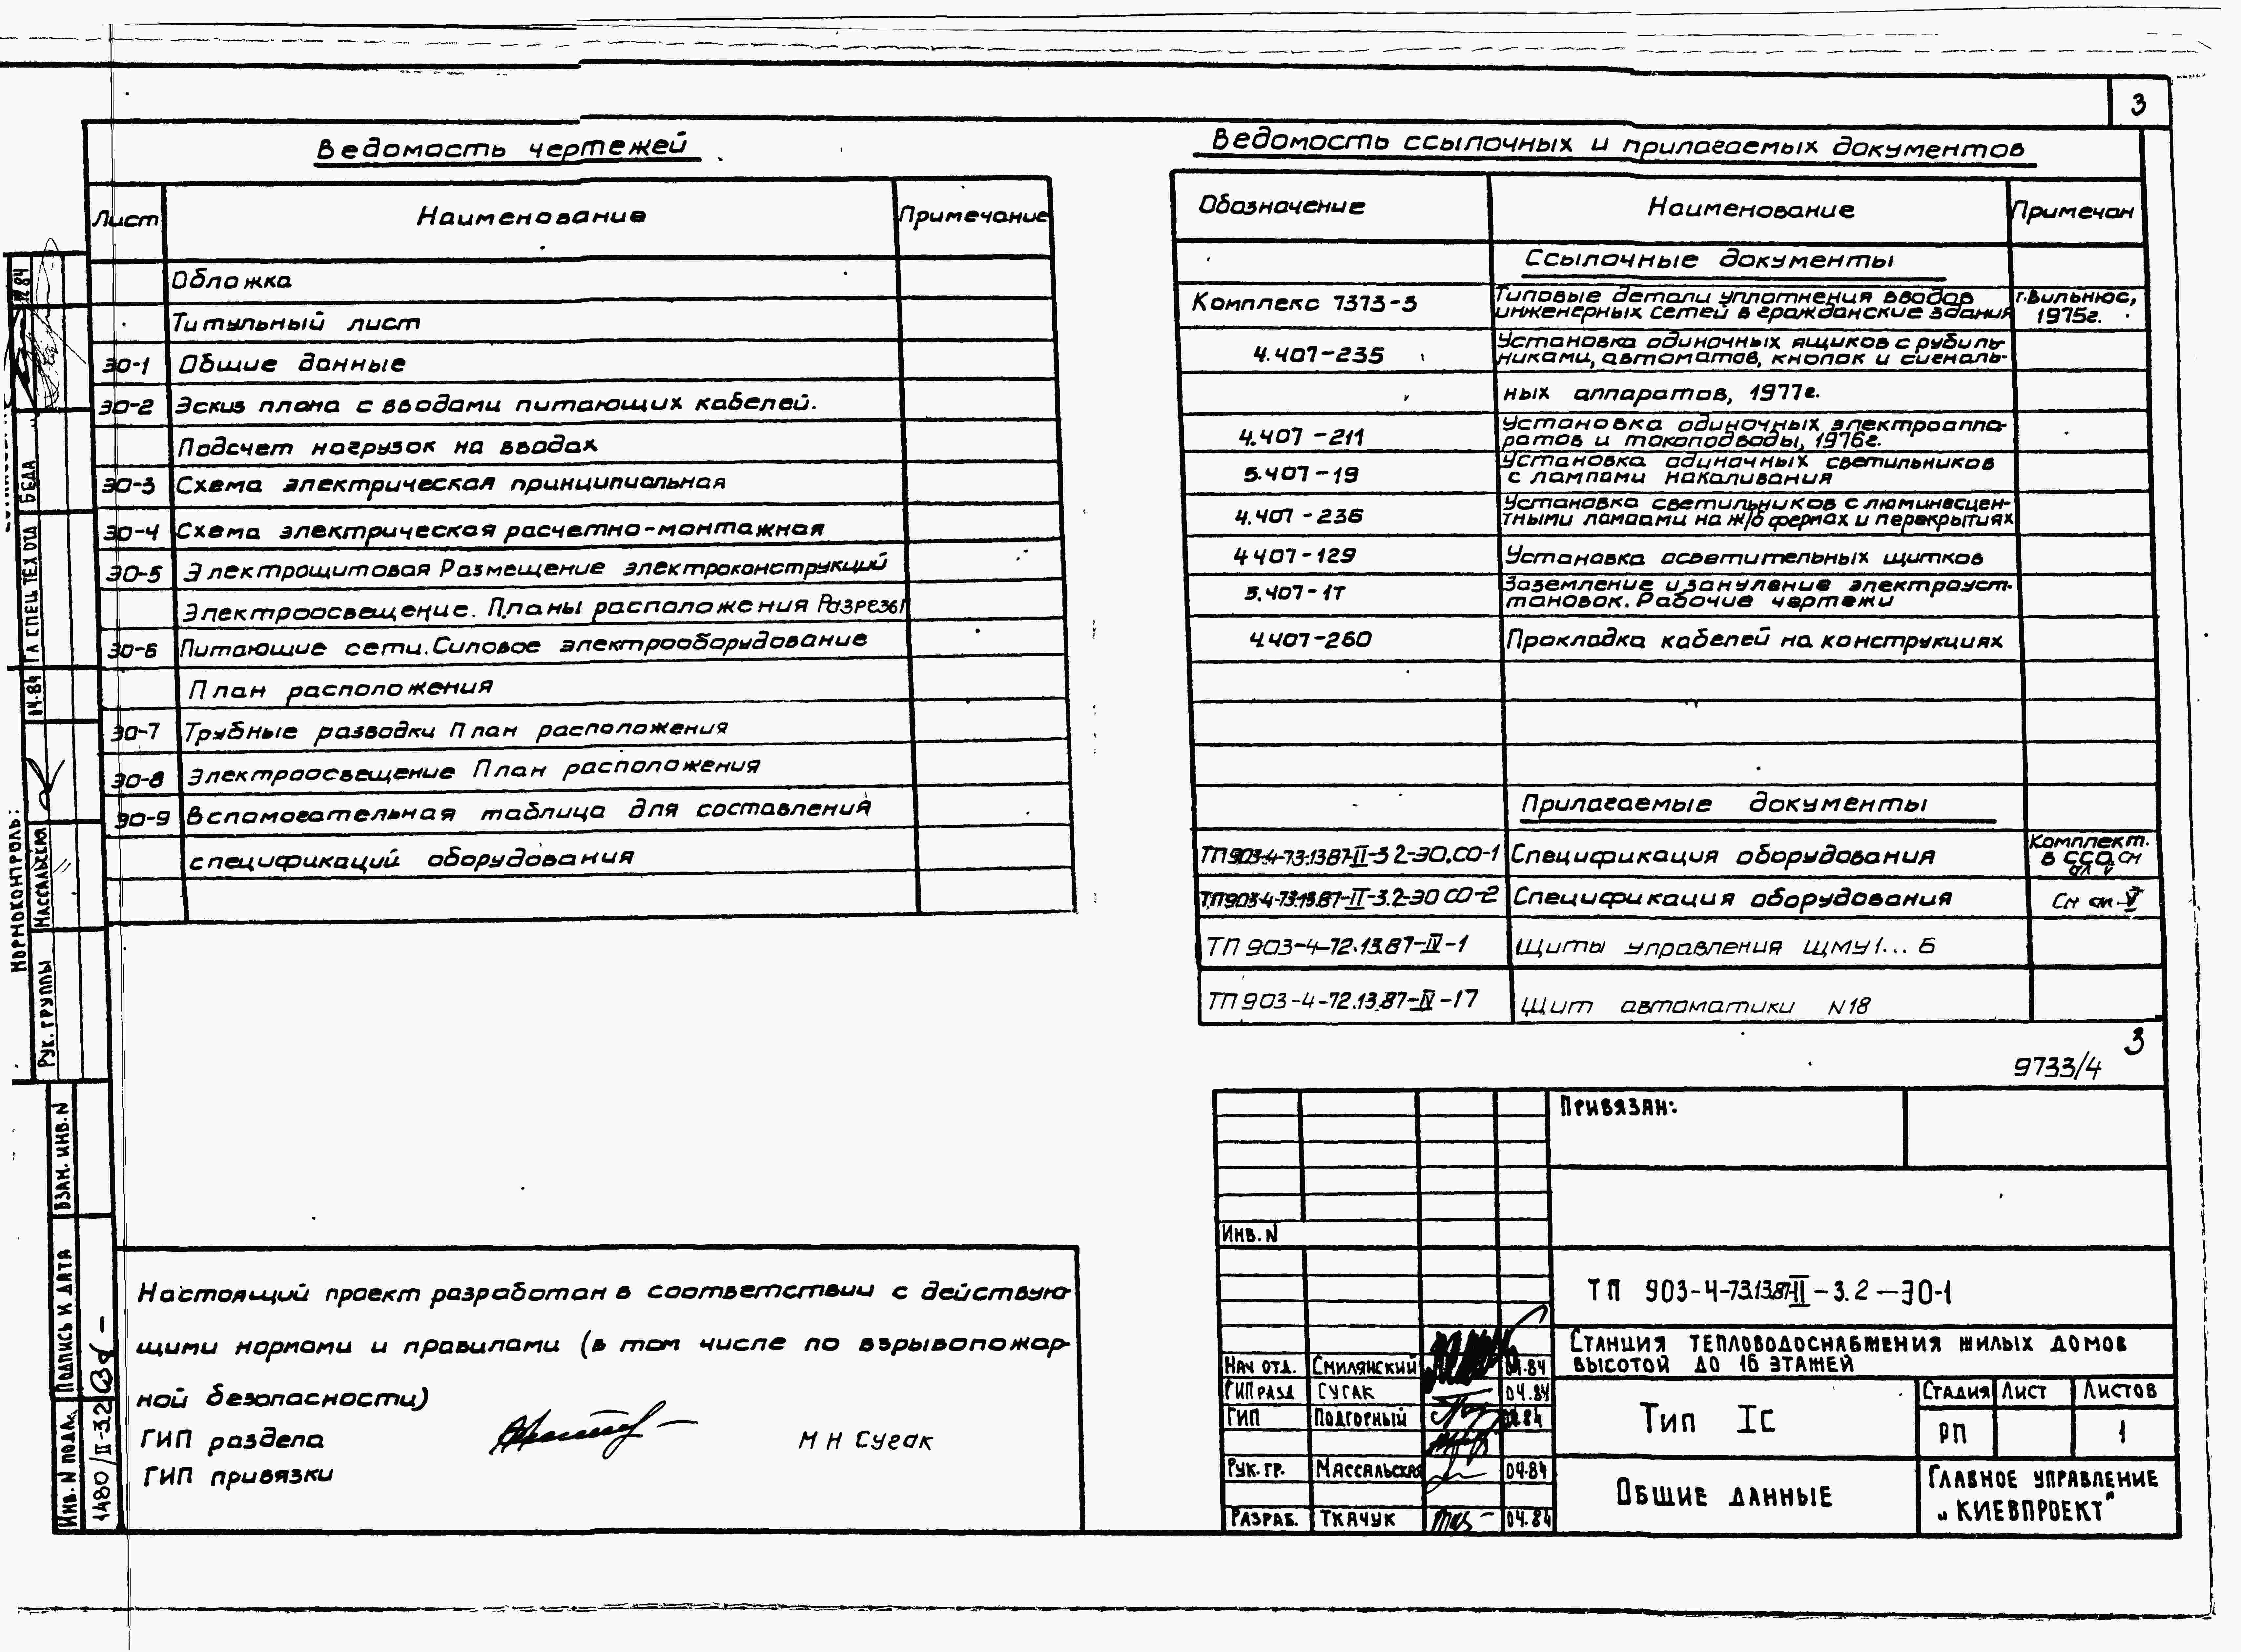 3
Ведомость чертежей
Лист Наименование Примечание
Обложка
Титульный лист
ЭО-1 Общие данные
ЭО-2 Эскиз плана с вводами питающих кабелей.
Подсчет нагрузок на вводах
ЭО-3 Схема электрическая принципиальная
ЭО-4 Схема электрическая расчетно-монтажная
ЭО-5 Электрощитовая Размещение электроконструкций
Электроосвещение. Планы расположения Разрезы
ЭО-6 Питающие сети. Силовое электрооборудование
План расположения
ЭО-7 Трубные разводки План расположения
ЭО-8 Электроосвещение План расположения
ЭО-9 Вспомогательная таблица для составления
спецификаций оборудования
Ведомость ссылочных и прилагаемых документов
Обозначение Наименование Примечан
Ссылочные документы
Комплекс 7373-3 Типовые детали уплотнения вводов г. Вильнюс,
инженерных сетей в гражданские здания 1975г.
4.407-235 Установка одиночных ящиков с рубиль-
никами, автоматов, кнопок и сигналь-
ных аппаратов, 1977г.
4.407-211 Установка одиночных электроаппа-
ратов и токоподводы, 1976г.
5.407-19 Установка одиночных светильников
с лампами накаливания
4.407-236 Установка светильников с люминесцен-
тными лампами на ж/б фермах и перекрытиях
4 407-129 Установка осветительных щитков
5.407-1т Заземление и зануление электроуст-
тановок. Рабочие чертежи
4.407-260 Прокладка кабелей на конструкциях
Прилагаемые документы
ТП 903-4-73.13.87-II-3 2-ЭО.СО-1 Спецификация оборудования Комплект.
в ССО см
ал V
ТП 903-4-73.13.87-II-3.2-ЭО СО-2 Спецификация оборудования См ал V
ТП 903-4-72.13.87-IV-1 Щиты управления ЩМУ1... 6
ТП 903-4-72.13.87-IV-17 Щит автоматики N18
3
9733/4
Настоящий проект разработан в соответствии с действую-
щими нормами и правилами (в том числе по взрывопожар-
ной безопасности)
ГИП раздела М Н Сугак
ГИП привязки
Привязан:
Инв. N
ТП 903-4-73.13.87-II-3.2-ЭО-1
Станция тепловодоснабжения жилых домов
высотой до 16 этажей
Нач отд. Смилянский 04.84
ГИП разд Сугак 04.84
ГИП Подгорный 04.84
Рук. гр. Массальская 04.84
Разраб. Ткачук 04.84
Тип Iс
Стадия Лист Листов
РП 1
Общие данные
Главное управление
„Киевпроект"
12 84
Гл спец тех отд Беда
Нормоконтроль:
Рук. группы Массальская 04.84
Взам. инв. N
Подпись и дата
Инв. N подл. 1480/II-3.2